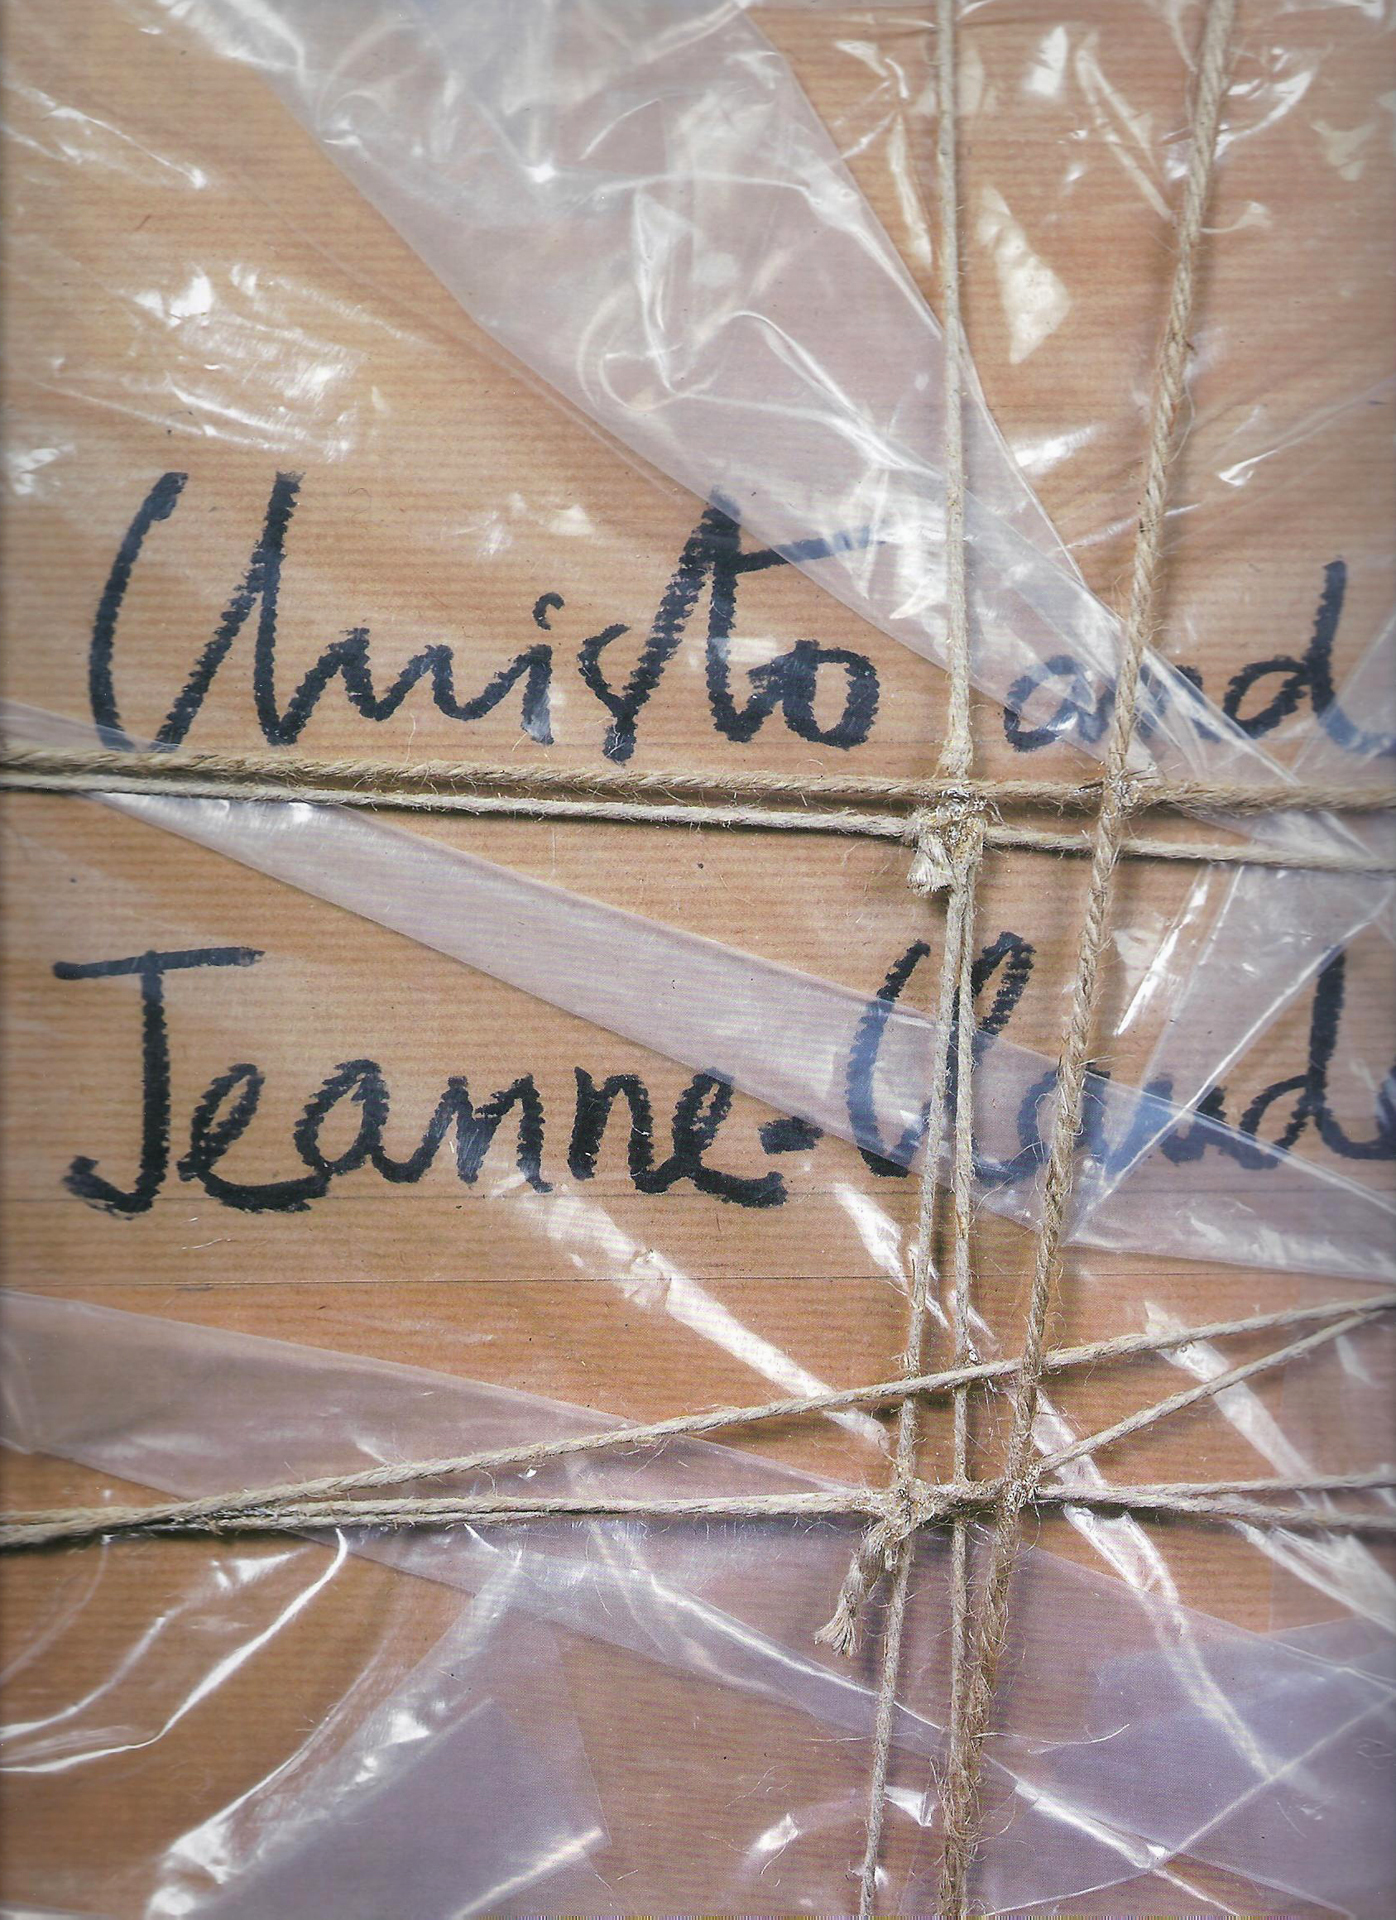 Christo and
Jeanne-Claude